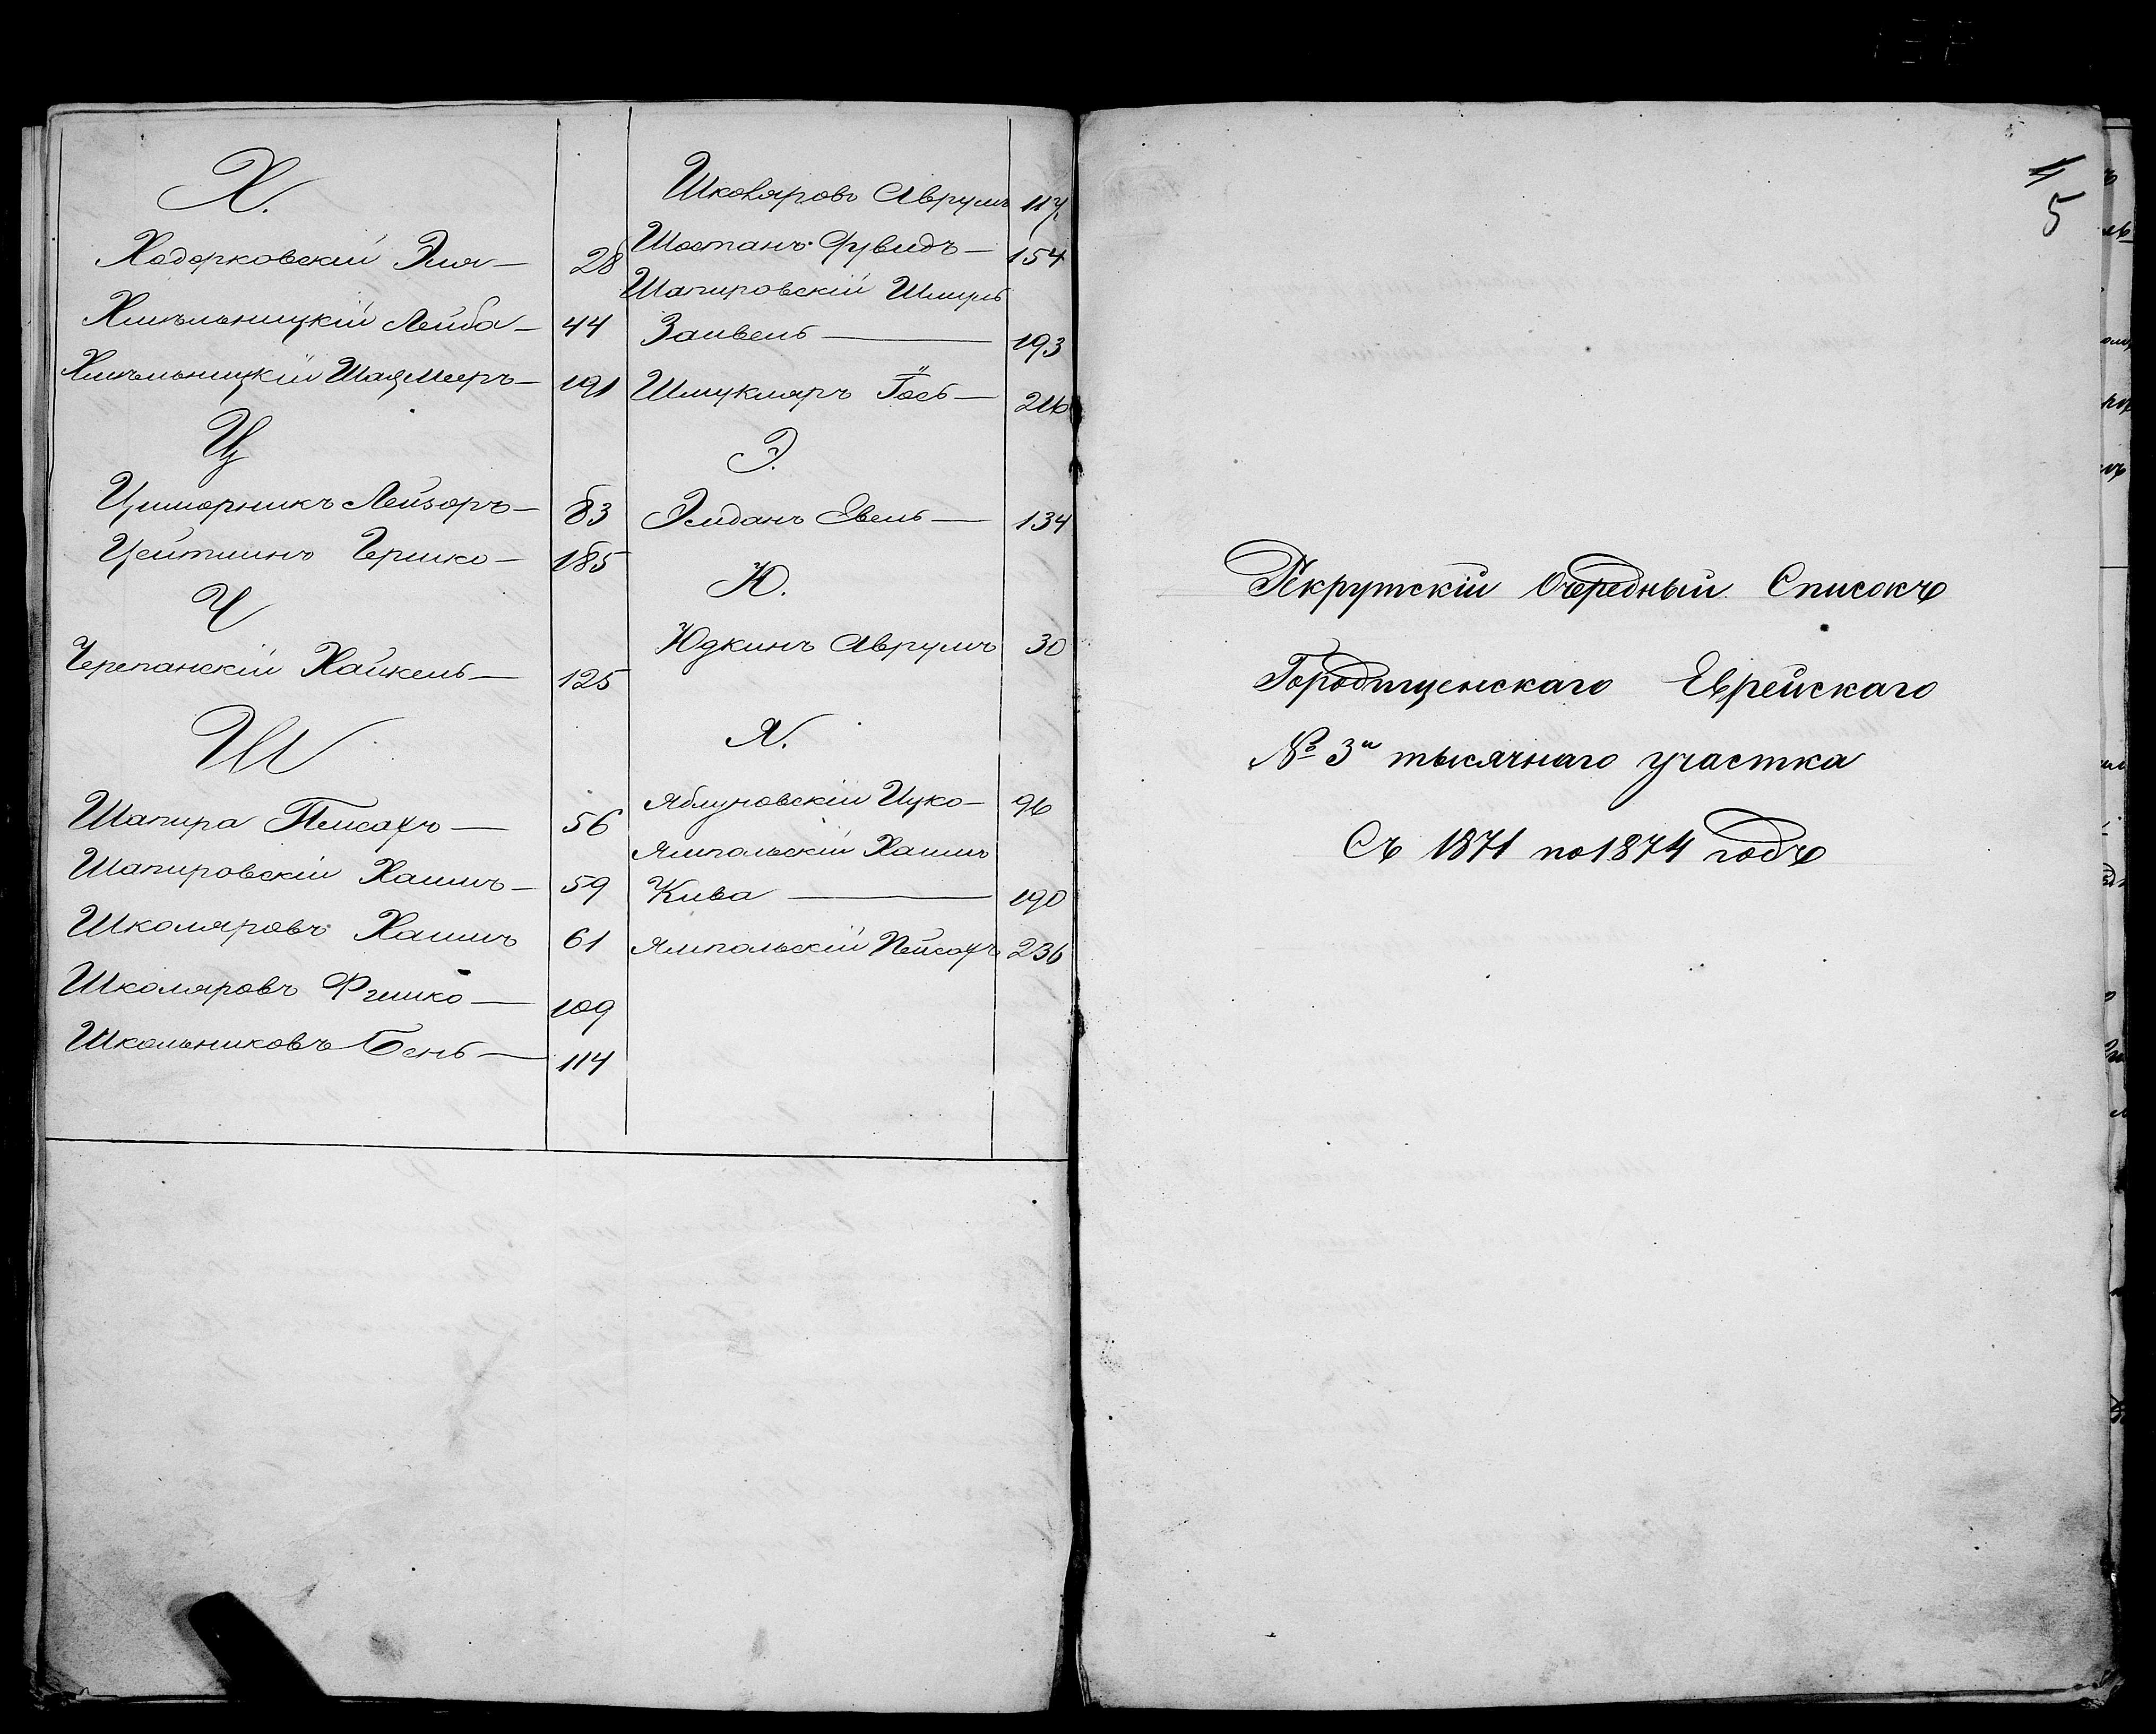 Х.
Ходорковскій Эля — 28
Хмѣльницкій Лейба — 44
Хмѣльницкій Шая Мееръ — 191
Ц
Циморникъ Лейзоръ — 83
Цейтлинъ Гершко — 185
Ч
Черепанскій Хайкель — 125
Ш
Шапира Пейсахъ — 56
Шапировскій Хаимъ — 59
Школяровъ Хаимъ 61
Школяровъ Фишко — 109
Школьниковъ Бень — 114
Школяровъ Аврумъ 117
Шостанъ — 154
Шапировскій Шмуль
Занвель — 193
Шмукляръ Іось — 216
Э.
Элиданъ Евель — 134
Ю.
Юдкинъ Аврумъ 30
Я.
Яблуновскій Ицко — 96
Ямпольскій Хаимъ
Кива — 190
Ямпольскій Пейсахъ 236
4
5
Рекрутскій Очередный Списокъ
Городищенскаго Еврейскаго
№ 3й тысячнаго участка
Съ 1871 по 1874 годъ